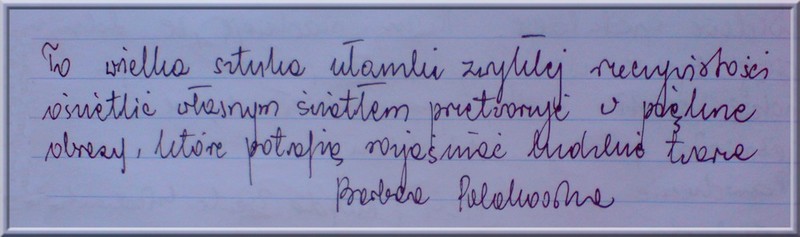 To wielka sztuka ułamki zwykłej rzeczywistości
oświetlić własnym światłem przetworzyć w piękne
obrazy, które potrafią rozjaśniać ludzkie twarze
Barbara